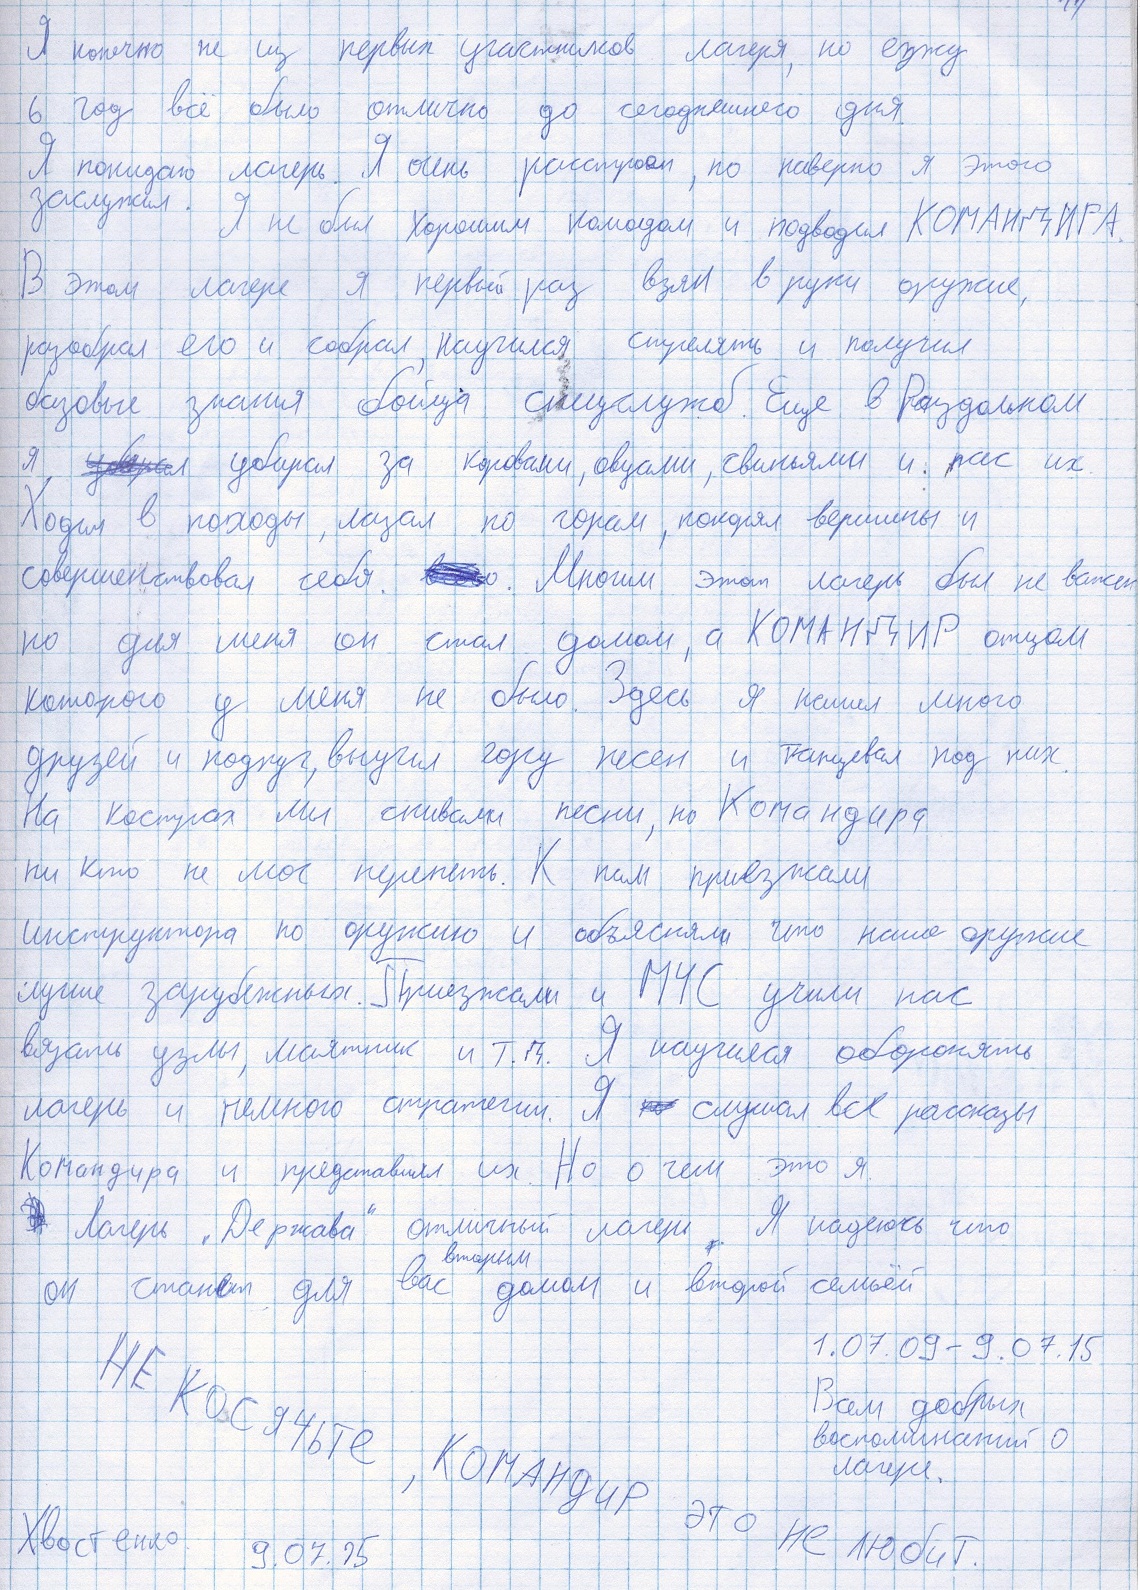 Я конечно не из первых участников лагеря, но езжу
6 год всё было отлично до сегодняшнего дня.
Я покидаю лагерь. Я очень расстроен, но наверно я этого
заслужил. Я не был хорошим комодом и подводил КОМАНДИРА.
В этом лагере я первый раз взял в руки оружие,
разобрал его и собрал, научился стрелять и получил
базовые знания бойца спецслужб. Еще в Раздольном
я убирал за коровами, овцами, свиньями и пас их.
Ходил в походы, лазал по горам, покорял вершины и
совершенствовал себя. Многим этот лагерь был не важен
но для меня он стал домом, а КОМАНДИР отцом
которого у меня не было. Здесь я нашел много
друзей и подруг, выучил гору песен и танцевал под них.
На кострах мы спивали песни, но Командира
ни кто не мог перепеть. К нам приезжали
инструктора по оружию и объясняли что наше оружие
лучше зарубежных. Приезжали и МЧС учили нас
вязать узлы, маятник и т.д. Я научился оборонять
лагерь и немного стратегии. Я слушал все рассказы
Командира и представлял их. Но о чем это я.
Лагерь „Держава“ отличный лагерь. Я надеюсь что
он станет для вас вторым домом и второй семьёй
1.07.09-9.07.15
Вам добрых
воспоминаний о
лагере.
НЕ КОСЯЧЬТЕ, КОМАНДИР ЭТО НЕ ЛЮБИТ.
Хвостенко 9.07.15